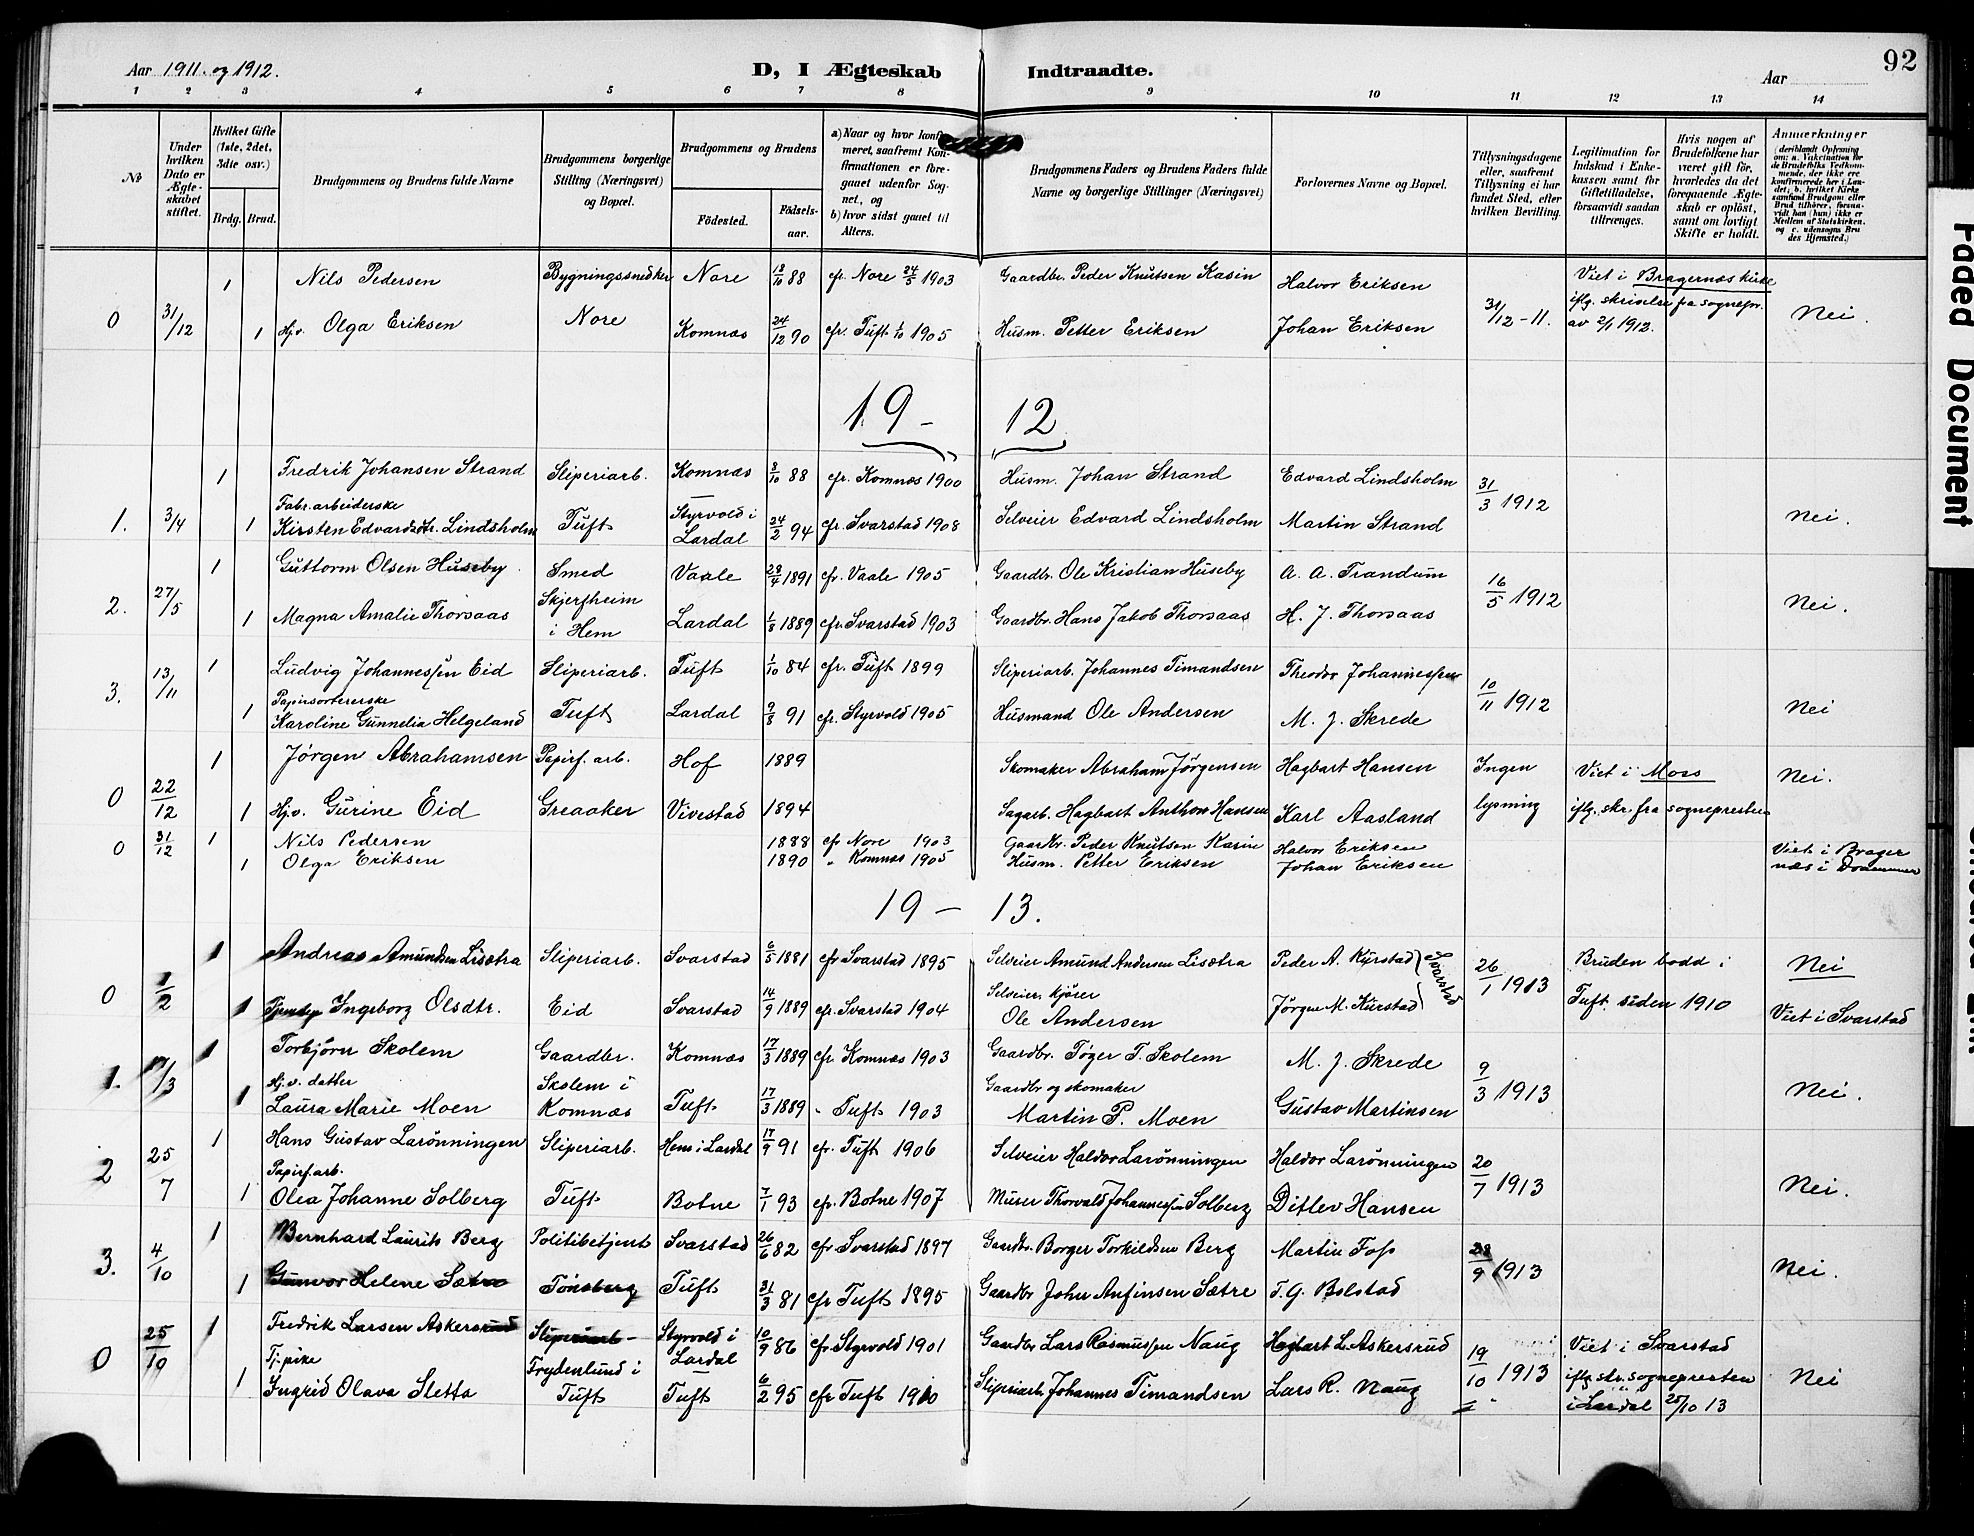 Aar 1911 og 1912.
D, I Ægteskab Indtraadte.
Aar
92
1 2 3 4 5 6 7 8 9 10 11 12 13 14
№
Under hvilken Dato er Ægteskabet stiftet.
Hvilket Gifte (1ste, 2det, 3die osv.)
Brdg. Brud.
Brudgommens og Brudens fulde Navne
Brudgommens borgerlige Stilling (Næringsvei) og Bopæl.
Brudgommens og Brudens
Fødested. Fødselsaar.
a) Naar og hvor konfirmeret, saafremt Konfirmationen er foregaaet udenfor Sognet, og
b) hvor sidst gaaet til Alters.
Brudgommens Faders og Brudens Faders fulde Navne og borgerlige Stillinger (Næringsvei)
Forlovernes Navne og Bopæl.
Tillysningsdagene eller, saafremt Tillysning ei har fundet Sted, efter hvilken Bevilling.
Legitimation for Indskud i Enkekassen samt for Giftetilladelse, forsaavidt saadan tiltrænges.
Hvis nogen af Brudefolkene har været gift før, hvorledes da det foregaaende Ægteskab er opløst, samt om lovligt Skifte er holdt.
Anmærkninger (deriblandt Oplysning om: a. Vakcination for de Brudefolks Vedkommende, der ikke ere konfirmerede her i Landet; b. hvilket Kirkesamfund Brudgom eller Brud tilhører, forsaavidt han (hun) ikke er Medlem af Statskirken, og c. udensogns Brudes Hjemsted.)
1 Nils Pedersen Bygningssnedker Nore 13/10 88 cfr. Nore 24/5 1903 Gaardbr. Peder Knutsen Kasin Halvor Eriksen Viet i Bragernæs kirke
0 31/12 1 Hj.v. Olga Eriksen Nore Komnæs 24/12 90 cfr. Tuft 1/10 1905 Husm. Petter Eriksen Johan Eriksen 31/12 - 11. iflg. skrivelse fra sognepr. av 2/1 1912. Nei.
19 - 12
1 Fredrik Johansen Strand Sliperiarb. Komnæs 3/10 88 cfr. Komnæs 1900 Husm. Johan Strand Edvard Lindsholm 31/3 1912
Fabr.arbeiderske
1. 3/4 1 Kirsten Edvardsdtr. Lindsholm Tuft Styrvold i Lardal 24/2 94 cfr. Svarstad 1908 Selveier Edvard Lindsholm Martin Strand Nei.
1 Guttorm Olsen Huseby Smed Vaale 28/4 1891 cfr. Vaale 1905 Gaardbr. Ole Kristian Huseby A. A. Trandum 16/5 1912
2. 27/5 1 Magna Amalie Thorsaas Skjerfheim i Hem Lardal 1/8 1889 cfr. Svarstad 1903 Gaardbr. Hans Jakob Thorsaas H. J. Thorsaas Nei.
1 Ludvig Johannessen Eid Sliperiarb. Tuft 1/10 84 cfr. Tuft 1899 Sliperiarb. Johannes Timandsen Theodor Johannessen 10/11 1912
Papirsortererske
3. 13/11 1 Karoline Gunnelia Helgeland Tuft Lardal 9/8 91 cfr. Styrvold 1905 Husmand Ole Andersen M. J. Skrede Nei
1 Jørgen Abrahamsen Papirf.arb. Hof 1889 Skomaker Abraham Jørgensen Hagbart Hansen Ingen Viet i Moss Nei.
0 22/12 1 Hj.v. Gurine Eid Greaaker Vivestad 1894 Sagarb. Hagbart Anthon Hansen Karl Aasland lysning iflg. skr. fra sognepresten
0 31/12 1 Nils Pedersen 1888 cfr Nore 1903 Gaardbr. Peder Knutsen Kasin Halvor Eriksen Viet i Brager
1 Olga Eriksen 1890 " Komnæs 1905 Husm. Petter Eriksen Johan Eriksen næs i Drammen
19 - 13.
1 Andreas Amundsen Lisætra Sliperiarb. Svarstad 6/5 1881 cfr Svarstad 1895 Selveier Amund Andersen Lisætra Peder A. Kjrstad Svarstad 26/1 1913 Bruden bodd i Nei
0 1/2 1 Tjenstep. Ingeborg Olsdtr. Eid Svarstad 14/9 1889 cfr. Svarstad 1904 Selveier, kjører Ole Andersen Jørgen M. Kirstad Tuft siden 1910 Viet i Svarstad
1 Torbjørn Skolem Gaardbr. Komnæs 17/3 1889 cfr Komnæs 1903 Gaardbr. Tøger T. Skolem M. J. Skrede 9/3 1913
Hj.v. datter
1. 17/3 1 Laura Marie Moen Skolem i Komnæs Tuft 17/3 1889 " Tuft 1903 Gaardbr og skomaker Martin P. Moen Gustav Martinsen Nei.
1 Hans Gustav Larønningen Sliperiarb. Hem i Lardal 17/9 91 cfr. Tuft 1906 Selveier Haldor Larønningen Haldor Larønningen 20/7 1913
Papirf.arb.
2 25/7 1 Olea Johanne Solberg Tuft Botne 7/1 93 cfr. Botne 1907 Murer Thorvald Johannessen Solberg Ditlev Hansen Nei.
1 Bernhard Laurits Berg Politibetjent Svarstad 26/6 82 cfr Svarstad 1897 Gaardbr. Borger Torkildsen Berg Martin Foss 28/9 1913
3. 4/10 1 Gunvor Helene Sætre Tønsberg Tuft 31/3 81 cfr Tuft 1895 Gaardbr John Anfinsen Sætre T. G. Bolstad Nei.
1 Fredrik Larsen Askersrud Sliperiarb Styrvold i Lardal 10/9 86 cfr Styrvold 1901 Gaardbr Lars Rasmussen Naug Hagbart L. Askersrud 19/10 1913 Viet i Svarstad
Tj.pike
0 25/10 1 Ingrid Olava Sletta Frydenlund i Tuft Tuft 6/2 95 cfr Tuft 1910 Sliperiarb Johannes Timandsen Lars R. Naug iflg. skr. sognepresten i Lardal 25/10 13 Nei
Faded Document